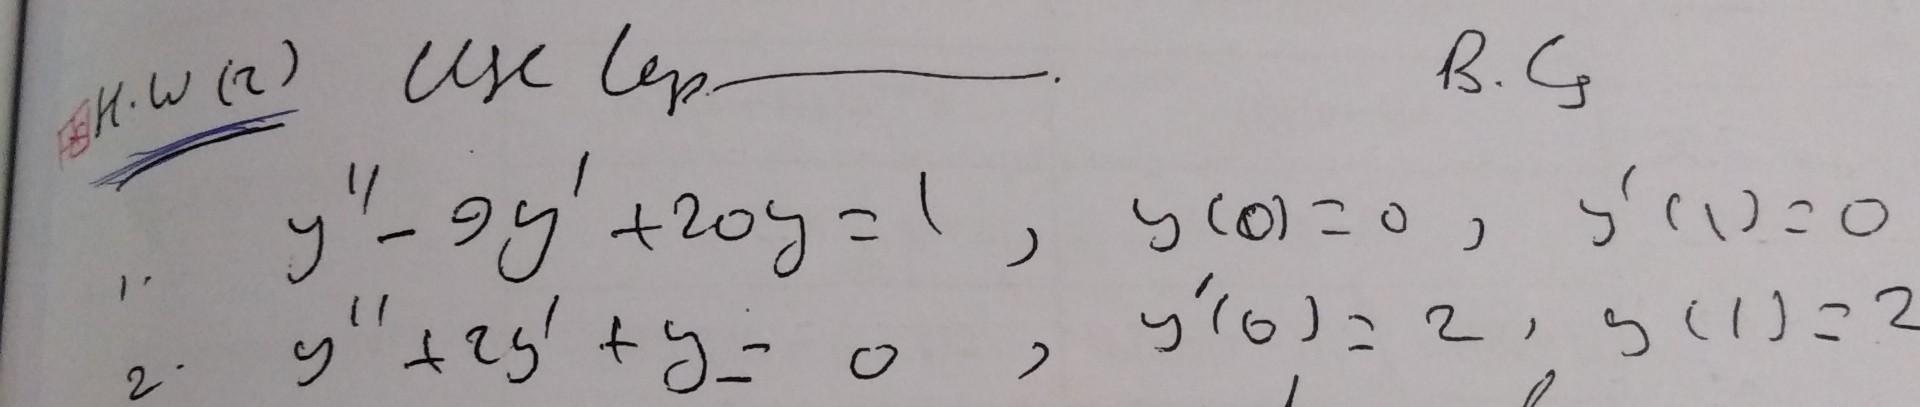 H.W (2) Use Lap. B.Cs
1. y'' - 9y' + 20y = 1 , y(0) = 0 , y'(1) = 0
2. y'' + 2y' + y = 0 , y'(0) = 2 , y(1) = 2